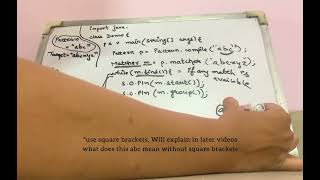 Import java.
class Demo {
p s v main(String[] args){
Pattern p = Pattern.compile ("abc");
Matcher m = p.matcher ("abcxyz");
while (m.find()) { = If any match is available
S.O.Pln (m.start());
S.O.Pln (m.group());
Pattern
= "abc"
Target = "abcxyz"
*use square brackets, Will explain in later videos
what does this abc mean without square brackets